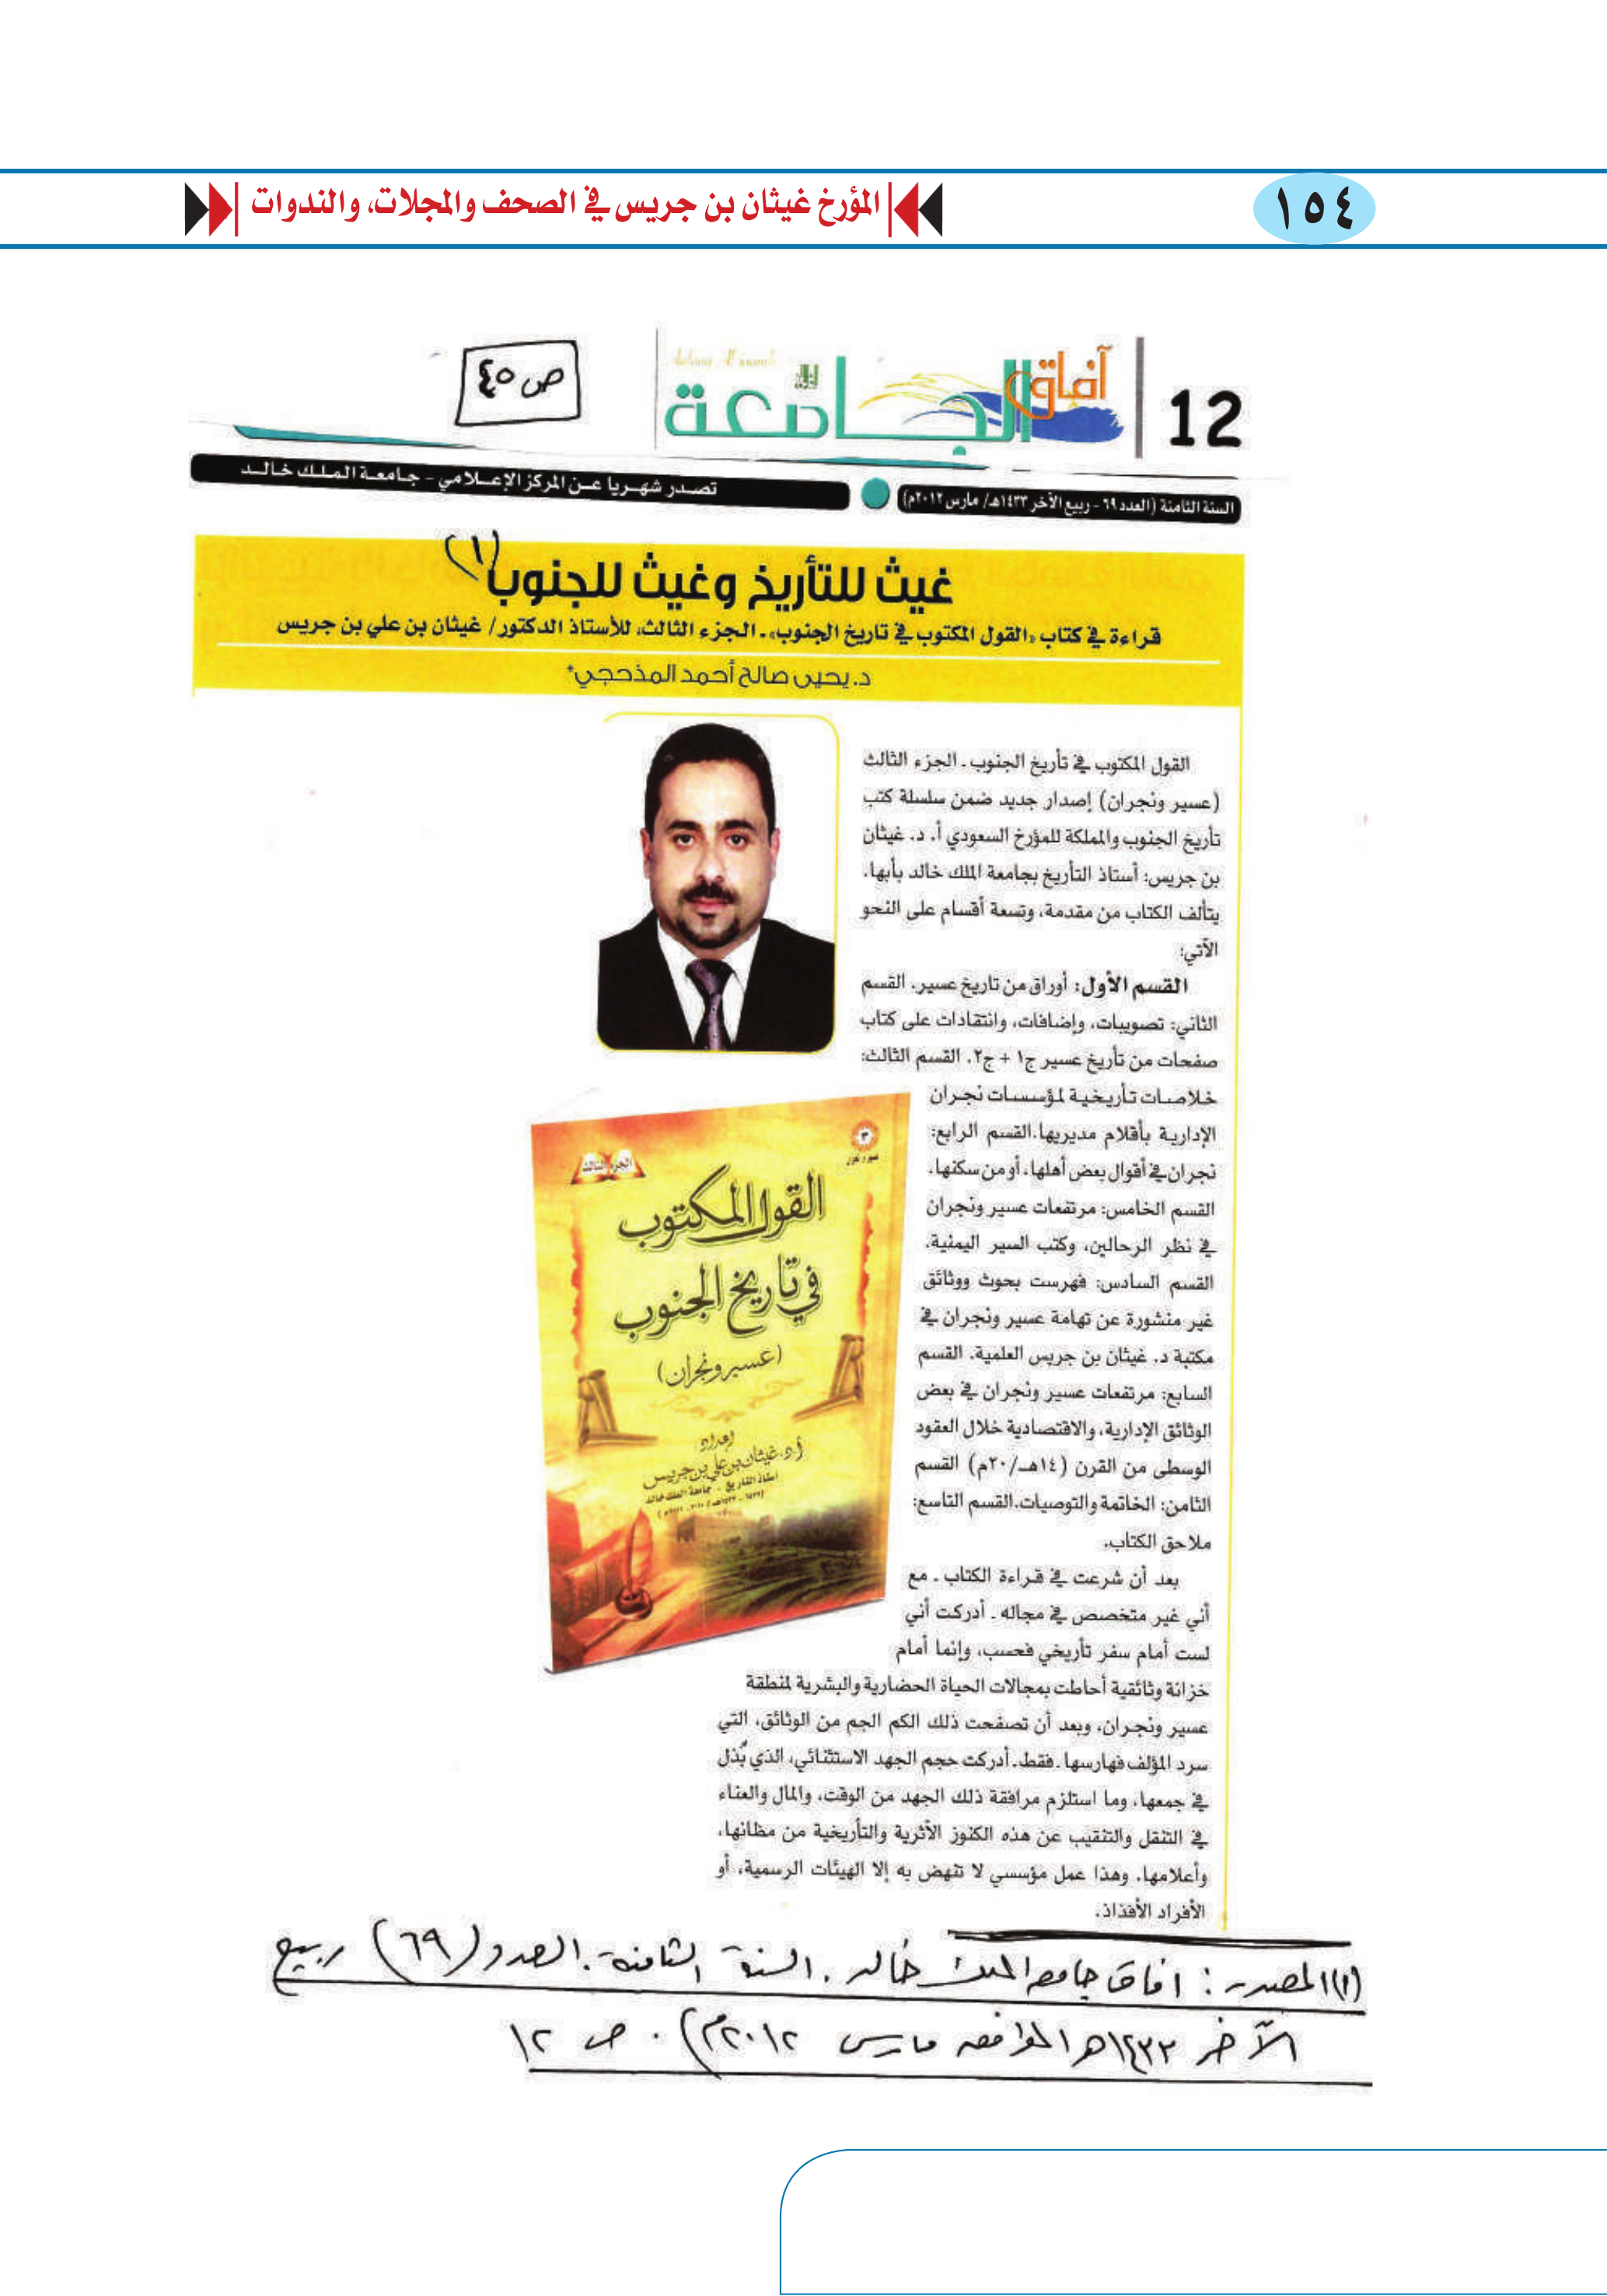 ١٥٤
المؤرخ غيثان بن جريس في الصحف والمجلات، والندوات
12
آفاق الجامعة
ص ٤٥
السنة الثامنة (العدد ٦٩ - ربيع الآخر ١٤٣٣هـ/ مارس ٢٠١٢م)
تصدر شهريا عن المركز الإعلامي - جامعة الملك خالد
غيث للتأريخ وغيث للجنوب (١)
قراءة في كتاب «القول المكتوب في تاريخ الجنوب». الجزء الثالث، للأستاذ الدكتور/ غيثان بن علي بن جريس
د. يحيى صالح أحمد المذحجي*
القول المكتوب في تأريخ الجنوب. الجزء الثالث
(عسير ونجران) إصدار جديد ضمن سلسلة كتب
تأريخ الجنوب والمملكة للمؤرخ السعودي أ. د. غيثان
بن جريس: أستاذ التأريخ بجامعة الملك خالد بأبها.
يتألف الكتاب من مقدمة، وتسعة أقسام على النحو
الآتي:
القسم الأول: أوراق من تاريخ عسير. القسم
الثاني: تصويبات، وإضافات، وانتقادات على كتاب
صفحات من تأريخ عسير ج١ + ج٢. القسم الثالث:
خلاصات تأريخية لمؤسسات نجران
الإدارية بأقلام مديريها. القسم الرابع:
نجران في أقوال بعض أهلها، أو من سكنها.
القسم الخامس: مرتفعات عسير ونجران
في نظر الرحالين، وكتب السير اليمنية.
القسم السادس: فهرست بحوث ووثائق
غير منشورة عن تهامة عسير ونجران في
مكتبة د. غيثان بن جريس العلمية. القسم
السابع: مرتفعات عسير ونجران في بعض
الوثائق الإدارية، والاقتصادية خلال العقود
الوسطى من القرن (١٤هـ/٢٠م) القسم
الثامن: الخاتمة والتوصيات. القسم التاسع:
ملاحق الكتاب.
بعد أن شرعت في قراءة الكتاب. مع
أني غير متخصص في مجاله. أدركت أني
لست أمام سفر تأريخي فحسب، وإنما أمام
خزانة وثائقية أحاطت بمجالات الحياة الحضارية والبشرية لمنطقة
عسير ونجران، وبعد أن تصفحت ذلك الكم الجم من الوثائق، التي
سرد المؤلف فهارسها. فقط. أدركت حجم الجهد الاستثنائي، الذي بُذل
في جمعها، وما استلزم مرافقة ذلك الجهد من الوقت، والمال والعناء
في التنقل والتنقيب عن هذه الكنوز الأثرية والتأريخية من مظانها،
وأعلامها. وهذا عمل مؤسسي لا تنهض به إلا الهيئات الرسمية، أو
الأفراد الأفذاذ.
٣
عسير ونجران
الجزء الثالث
القول المكتوب
في تاريخ الجنوب
(عسير ونجران)
إعداد
أ.د. غيثان بن علي بن جريس
أستاذ التاريخ - جامعة الملك خالد
(١) المصدر: آفاق جامعة الملك خالد. السنة الثامنة. العدد (٦٩) ربيع
الآخر ١٤٣٣هـ الموافق مارس ٢٠١٢م). ص ١٢